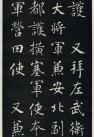 護又拜左武衛
大將軍兼安北副
都護横塞軍使兼
軍營田使又兼